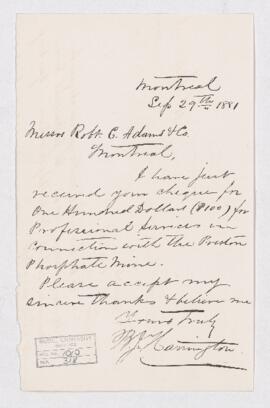 Montreal
Sep 29th 1881
Messrs Robt. C. Adams & Co.
Montreal,
I have just
received your cheque for
One Hundred Dollars ($100) for
Professional Services in
Connection with the
Phosphate Mine.
Please accept my
sincere thanks & believe me
Yours truly
B J Harrington.